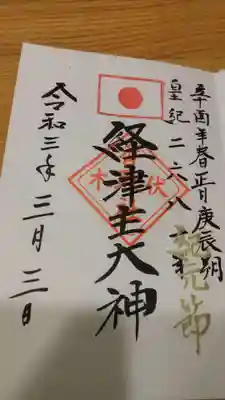 辛酉年春正月庚辰朔
皇紀二六八一年
紀元節
経津主大神
伏木
令和三年三月三日